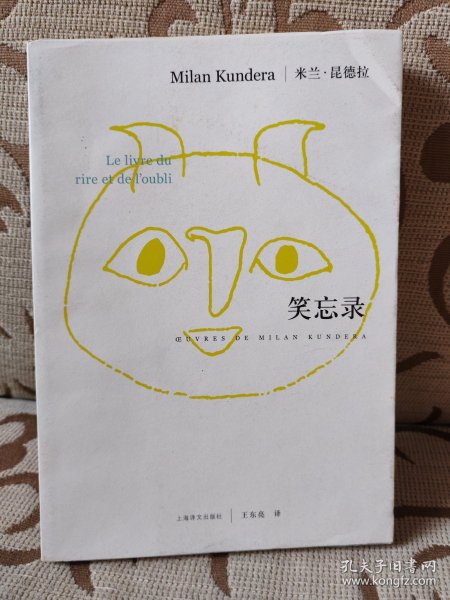 Milan Kundera | 米兰·昆德拉
Le livre du
rire et de l'oubli
笑忘录
ŒUVRES DE MILAN KUNDERA
上海译文出版社 | 王东亮 译
孔夫子旧书网
www.kongfz.com